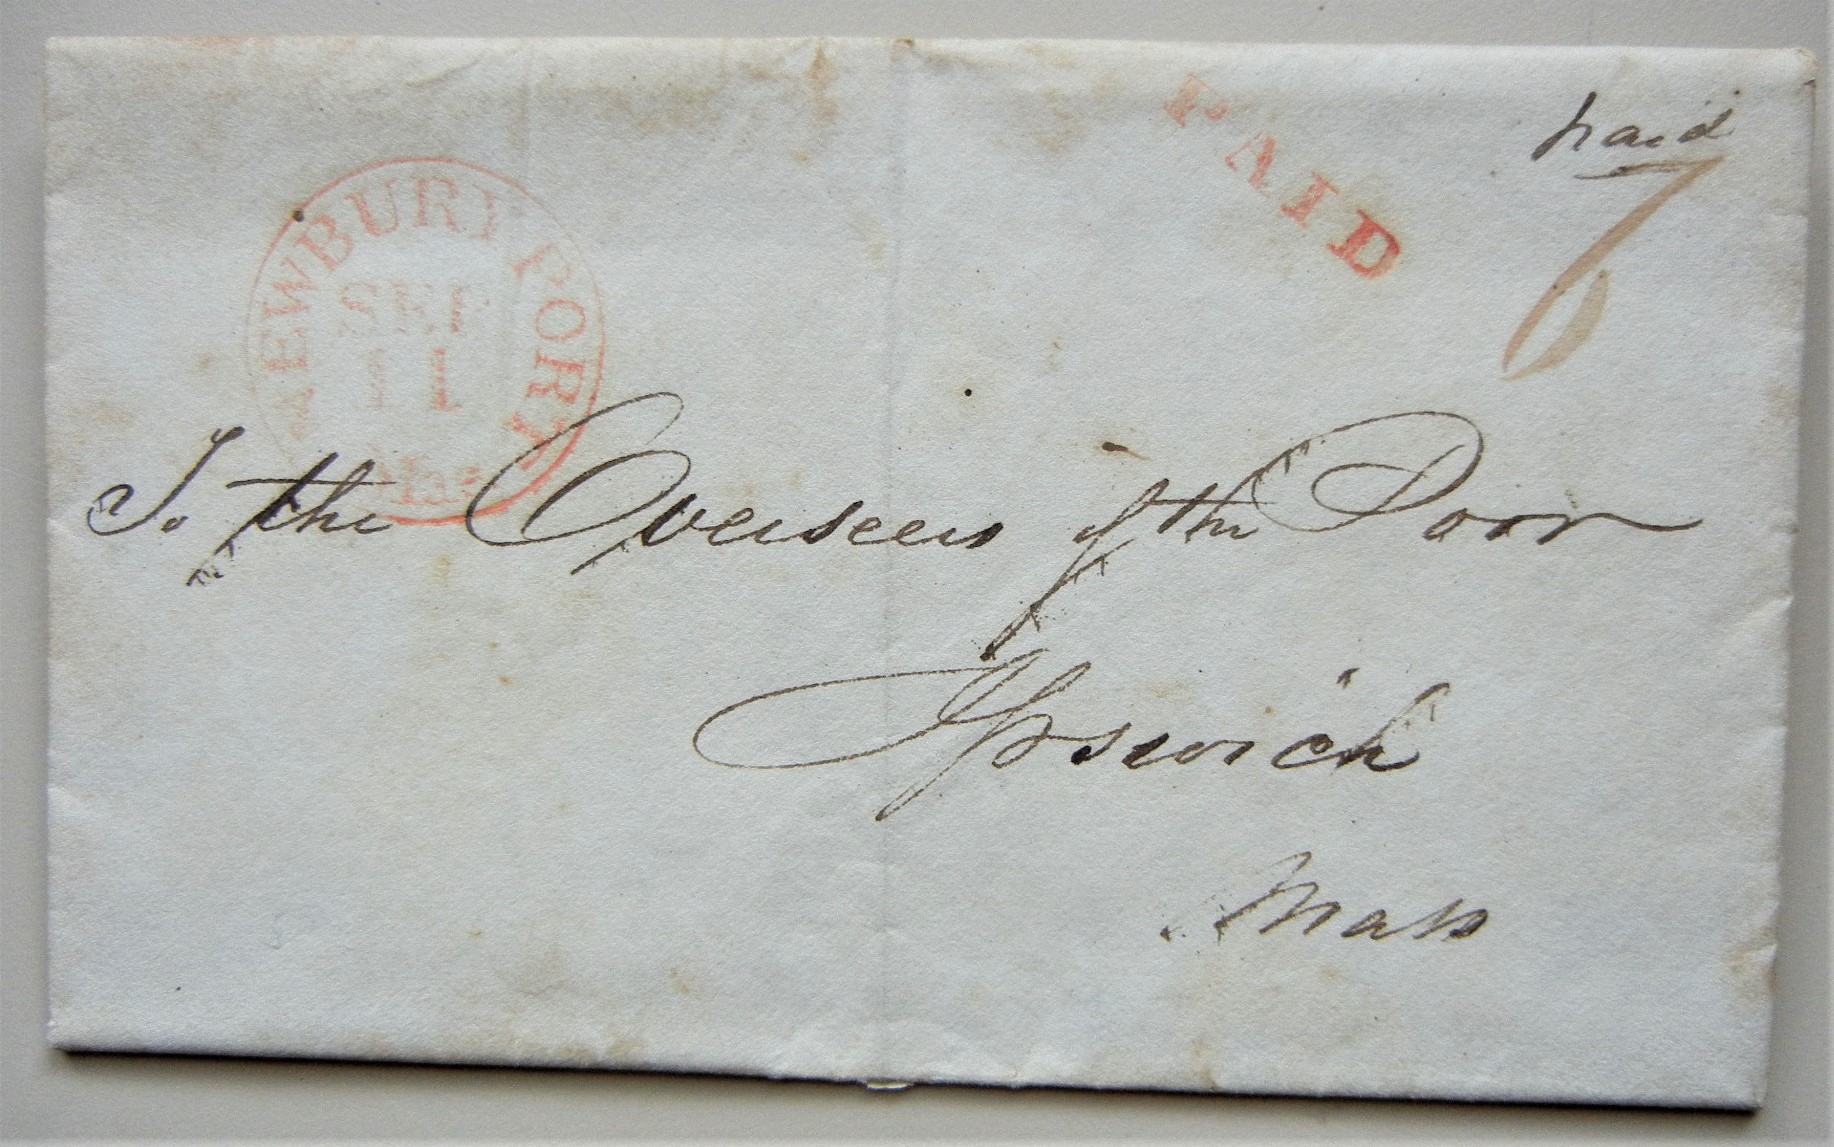 paid
6
PAID
NEWBURYPORT
SEP
11
Mas
To the Overseers of the Poor
Ipswich
Mass